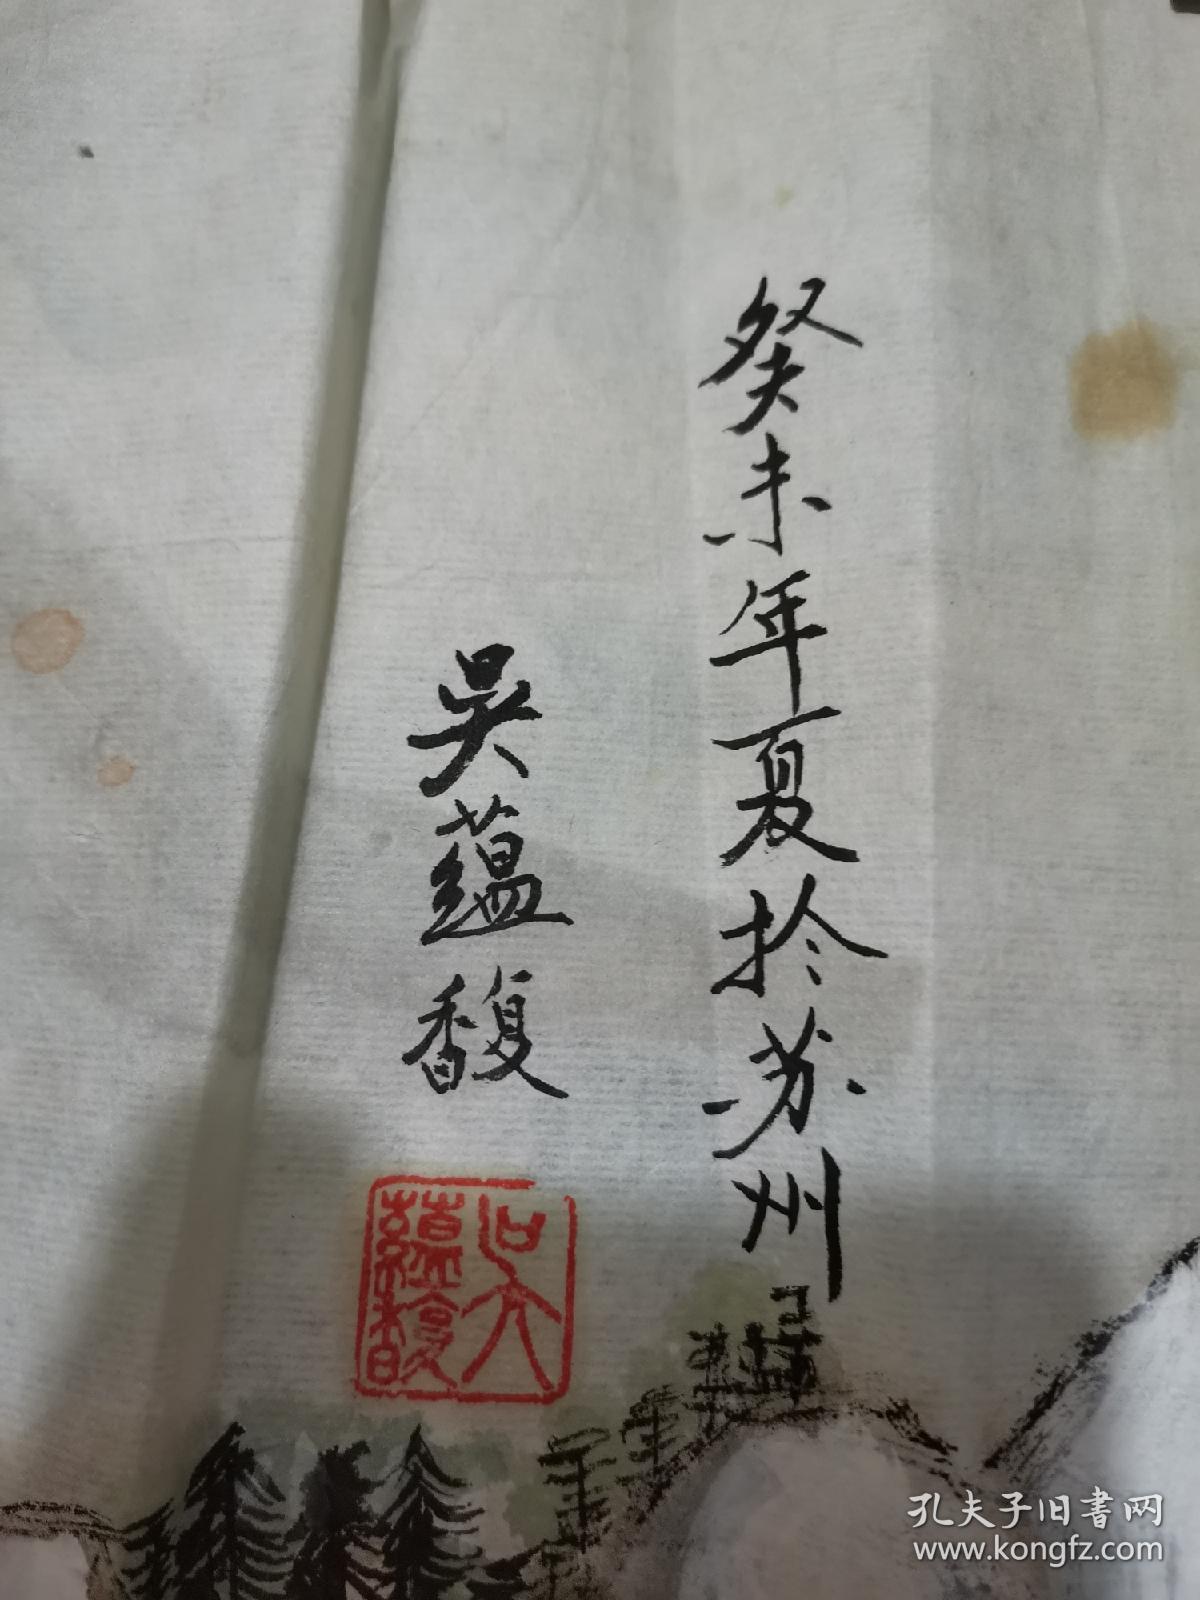 癸未年夏於苏州
吴蕴馥
吴蕴馥
孔夫子旧書网
www.kongfz.com